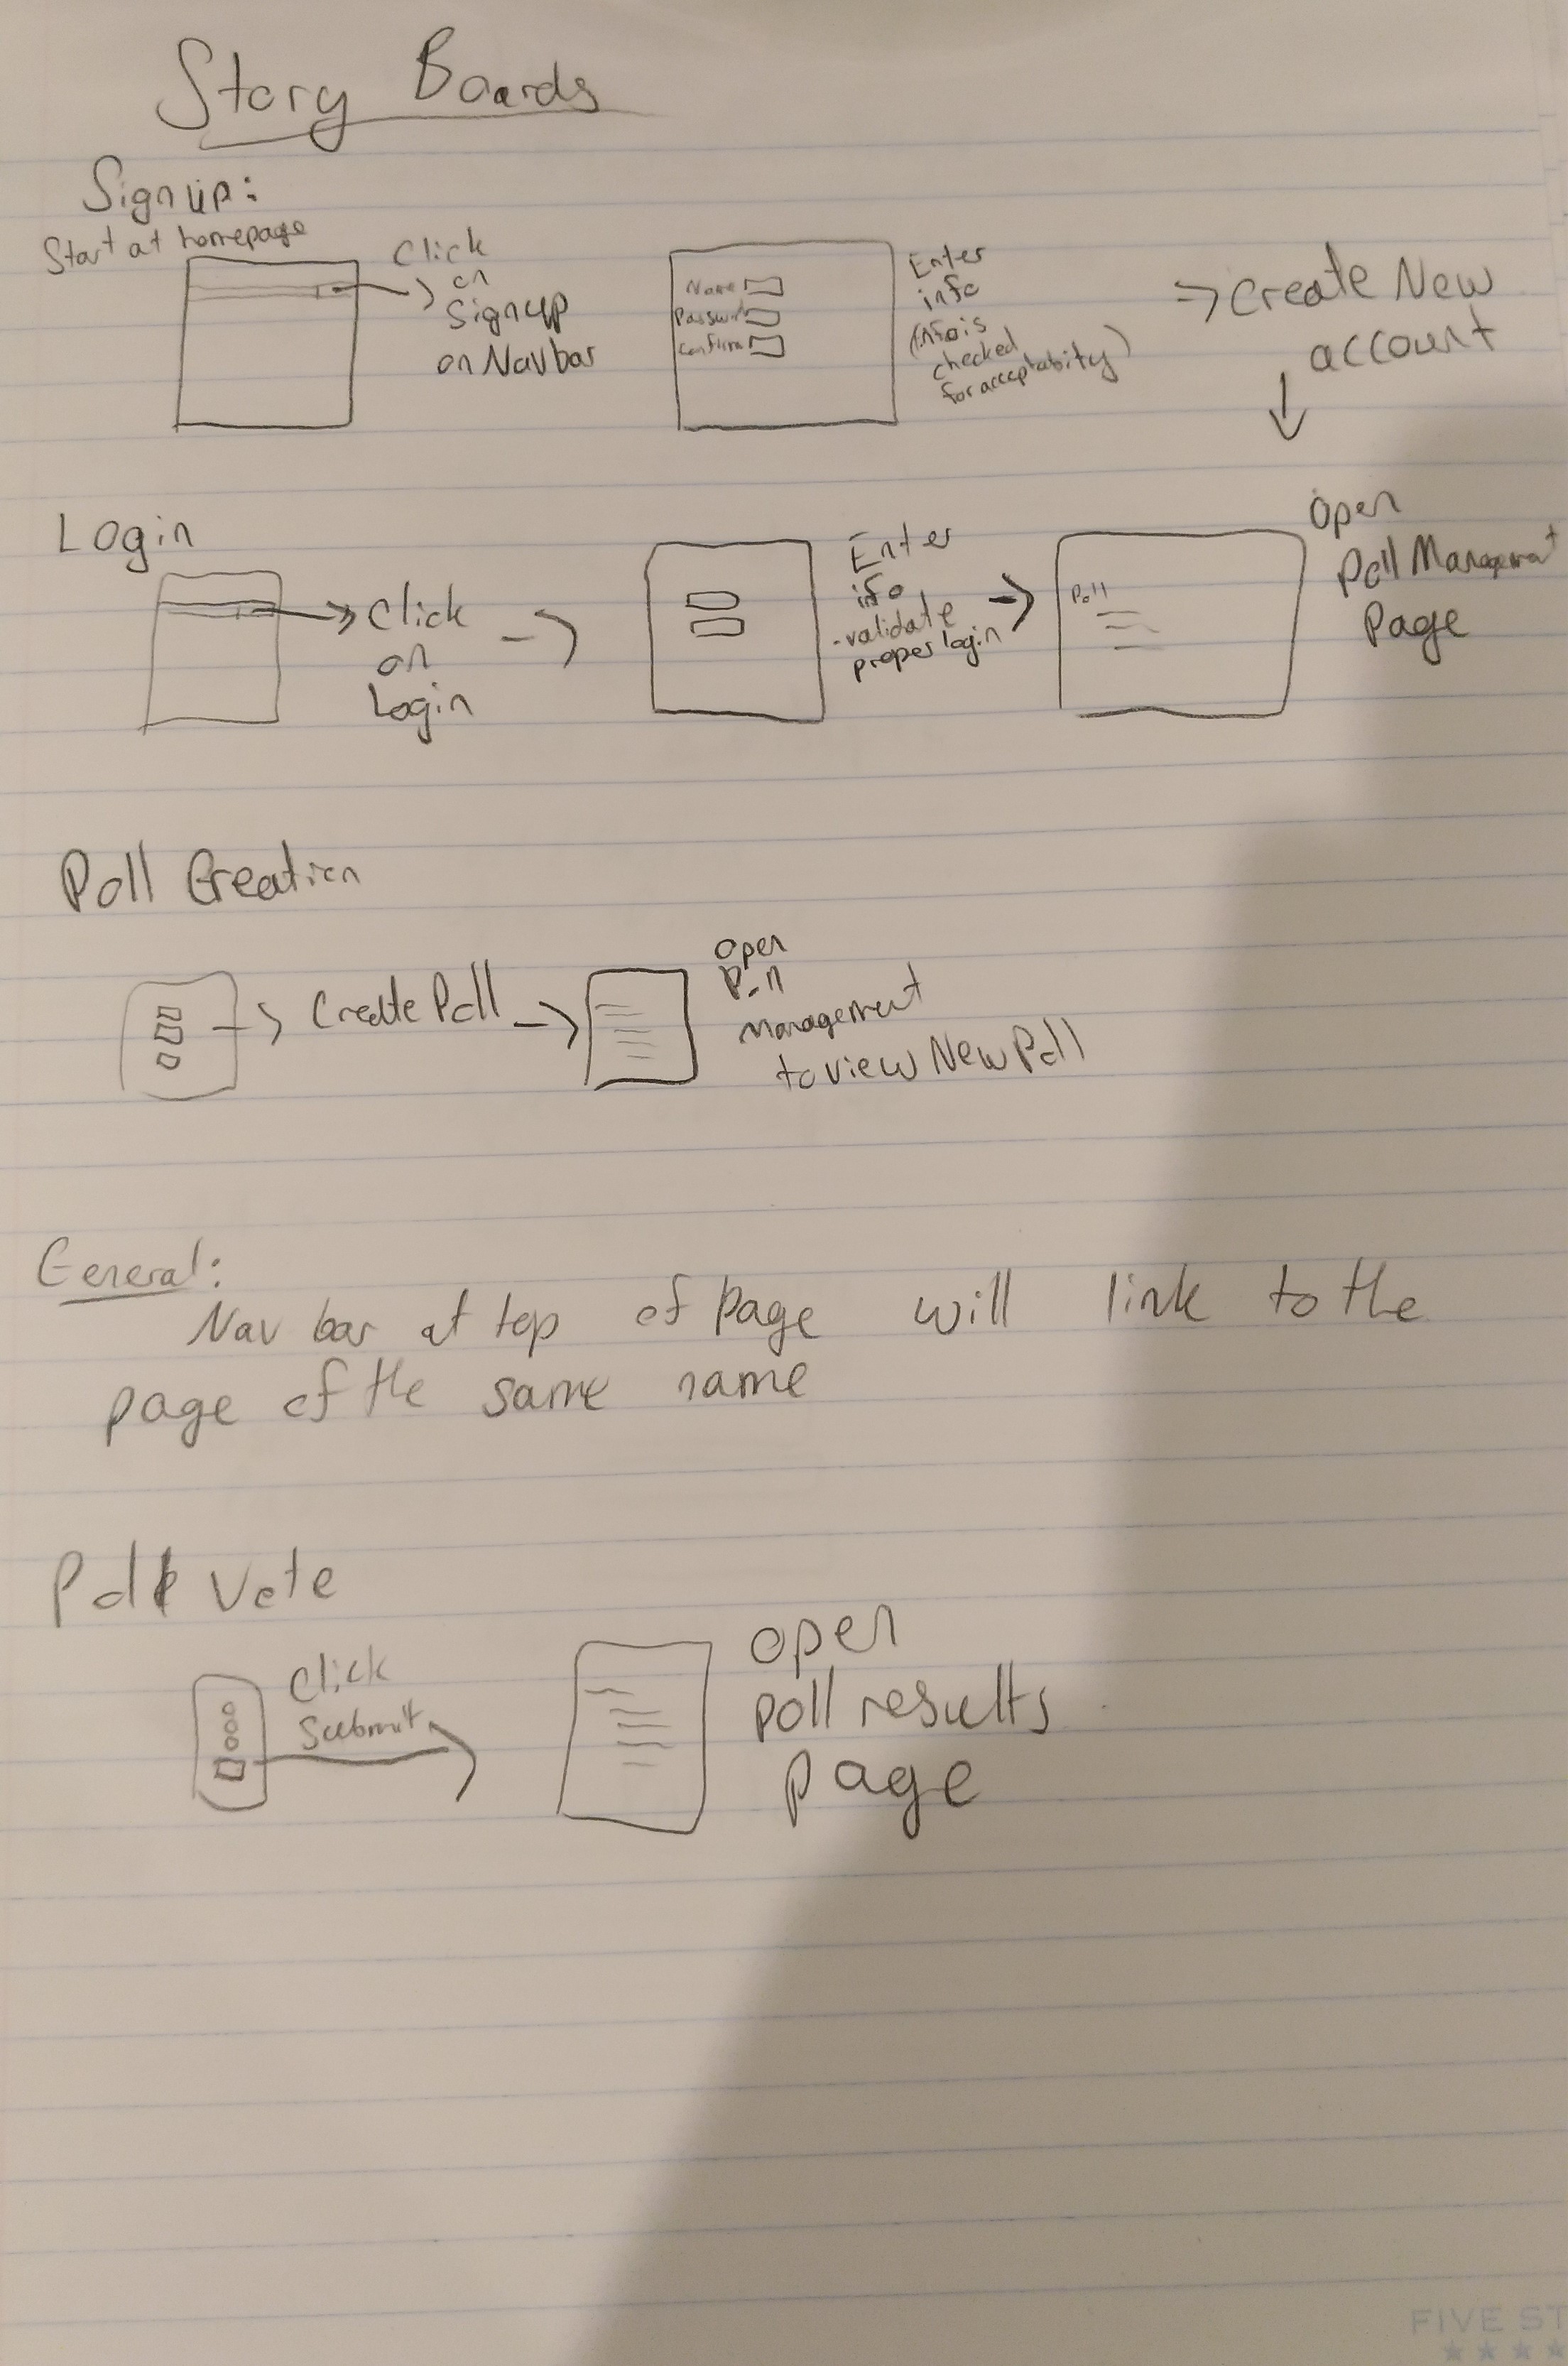 Story Boards
Signup:
Start at homepage
Click
on
Signup
on Navbar
Name
Password
Confirm
Enter
info
(info is
checked
for acceptability)
Create New
account
Login
Click
on
Login
Enter
info
-validate
proper login
Poll
Open
Poll Management
Page
Poll Creation
Create Poll
Open
Poll
Management
to view New Poll
General:
Nav bar at top of page will link to the
page of the same name
Poll Vote
Click
Submit
open
poll results
page
FIVE ST